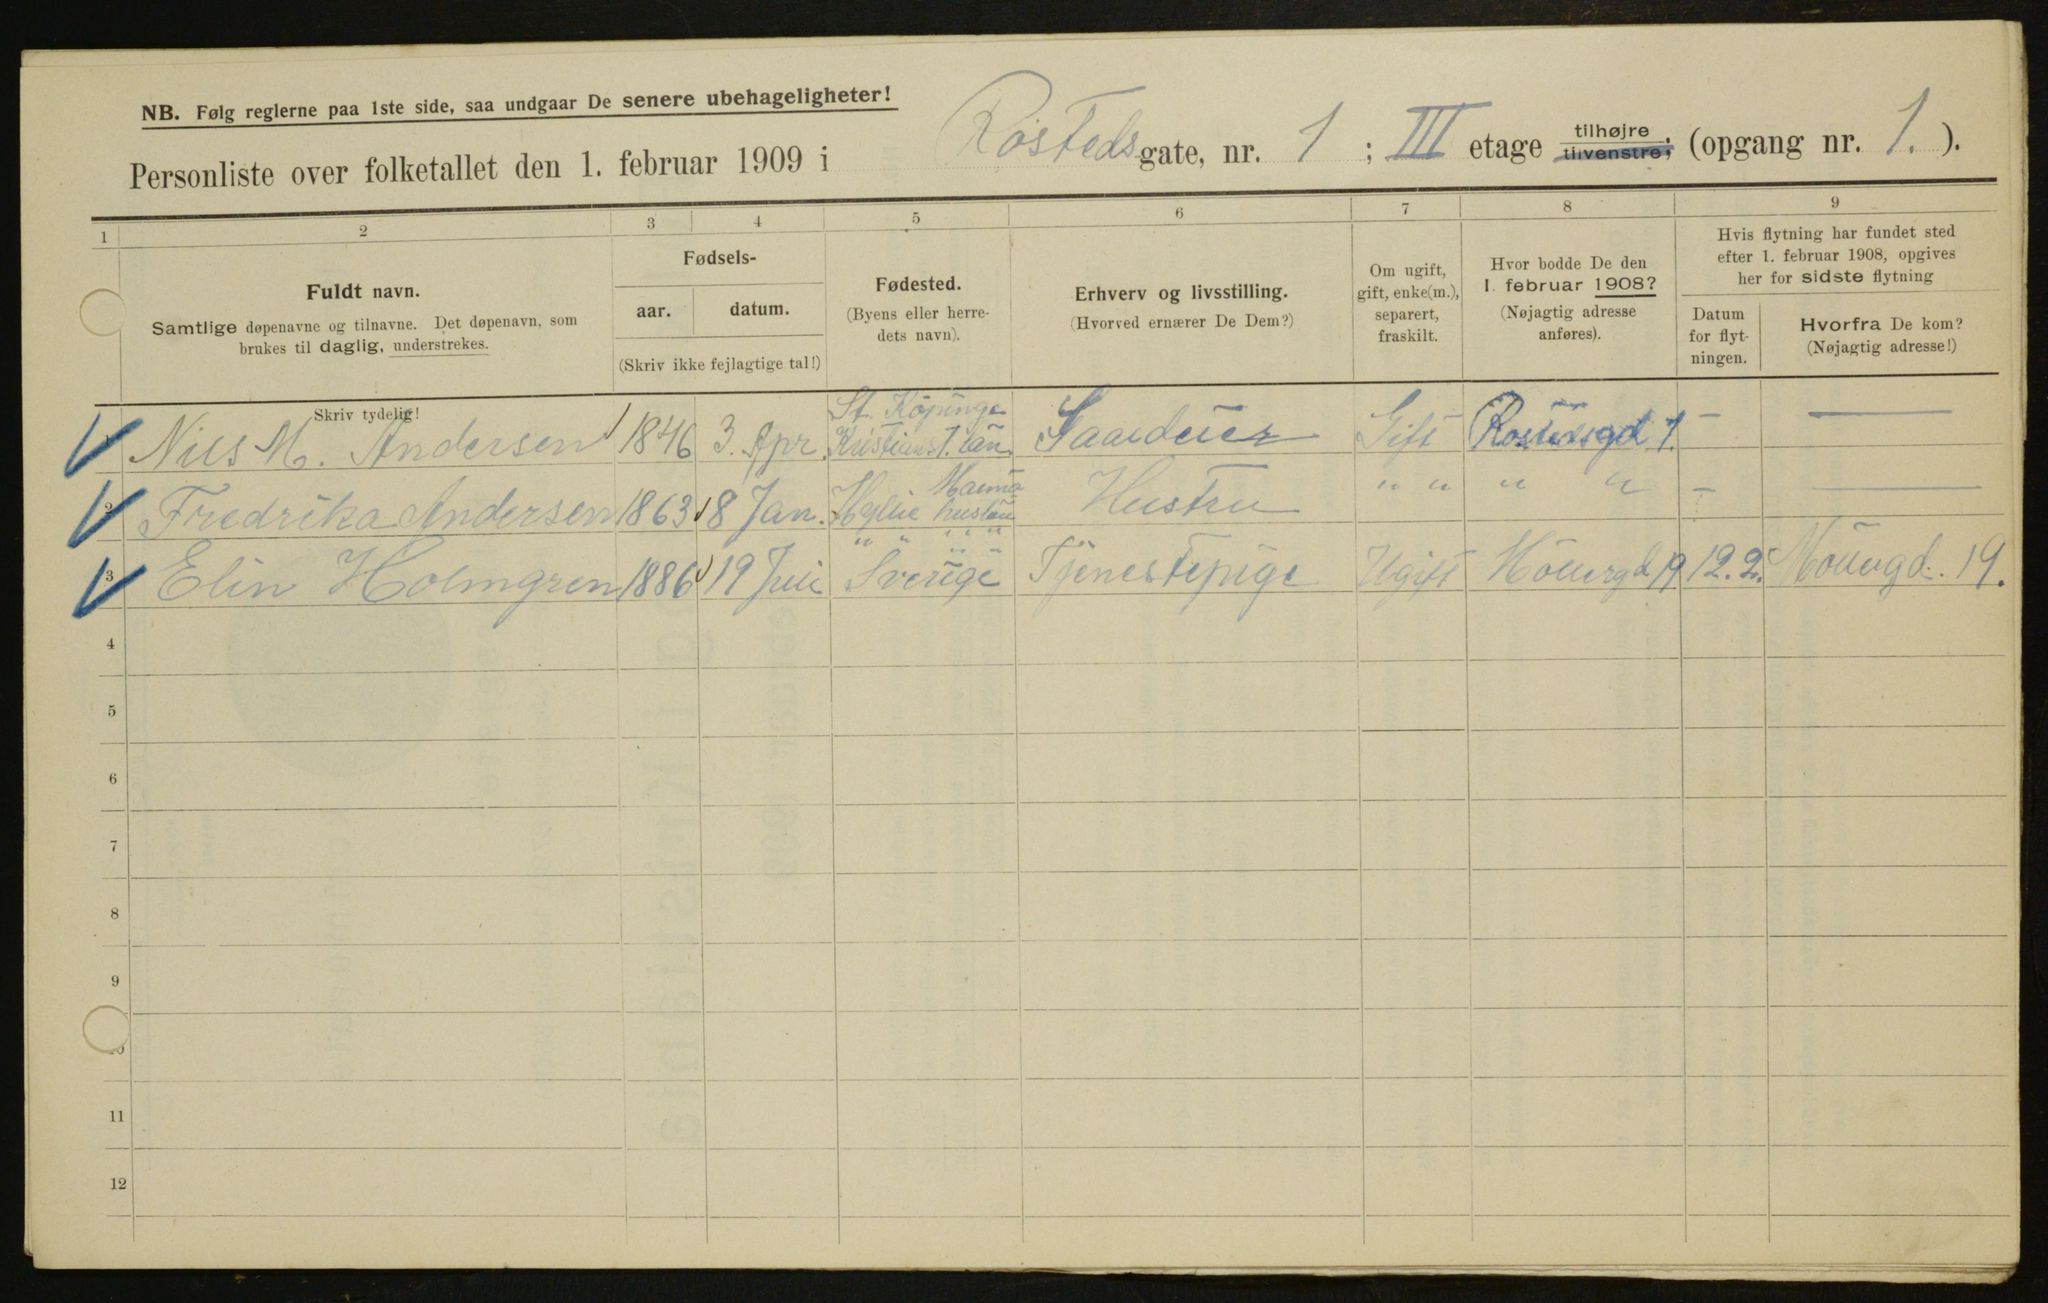 NB. Følg reglerne paa 1ste side, saa undgaar De senere ubehageligheter!
Personliste over folketallet den 1. februar 1909 i Rosteds gate, nr. 1 ; III etage tilhøjre, tilvenstre, (opgang nr. 1. ).
1 2 3 4 5 6 7 8 9
Fuldt navn.
Samtlige døpenavne og tilnavne. Det døpenavn, som
brukes til daglig, understrekes.
Fødsels-
aar. datum.
(Skriv ikke fejlagtige tal!)
Fødested.
(Byens eller herre-
dets navn).
Erhverv og livsstilling.
(Hvorved ernærer De Dem?)
Om ugift,
gift, enke(m.),
separert,
fraskilt.
Hvor bodde De den
1. februar 1908?
(Nøjagtig adresse
anføres).
Hvis flytning har fundet sted
efter 1. februar 1908, opgives
her for sidste flytning
Datum
for flyt-
ningen.
Hvorfra De kom?
(Nøjagtig adresse!)
Skriv tydelig!
1 Nils M. Andersen 1846 3. Apr. St. Köpinge Kristianst. län Gift Rostedsgd 1. – —
2 Fredrika Andersen 1863 8 Jan. Hyllie Malmö huslän Hustru " " " " – —
" " " "
3 Elin Holmgren 1886 19 Juli Sverige Tjenestepige Ugift Möllergd 19 12.2. Möllergd. 19.
4
5
6
7
8
9
10
11
12